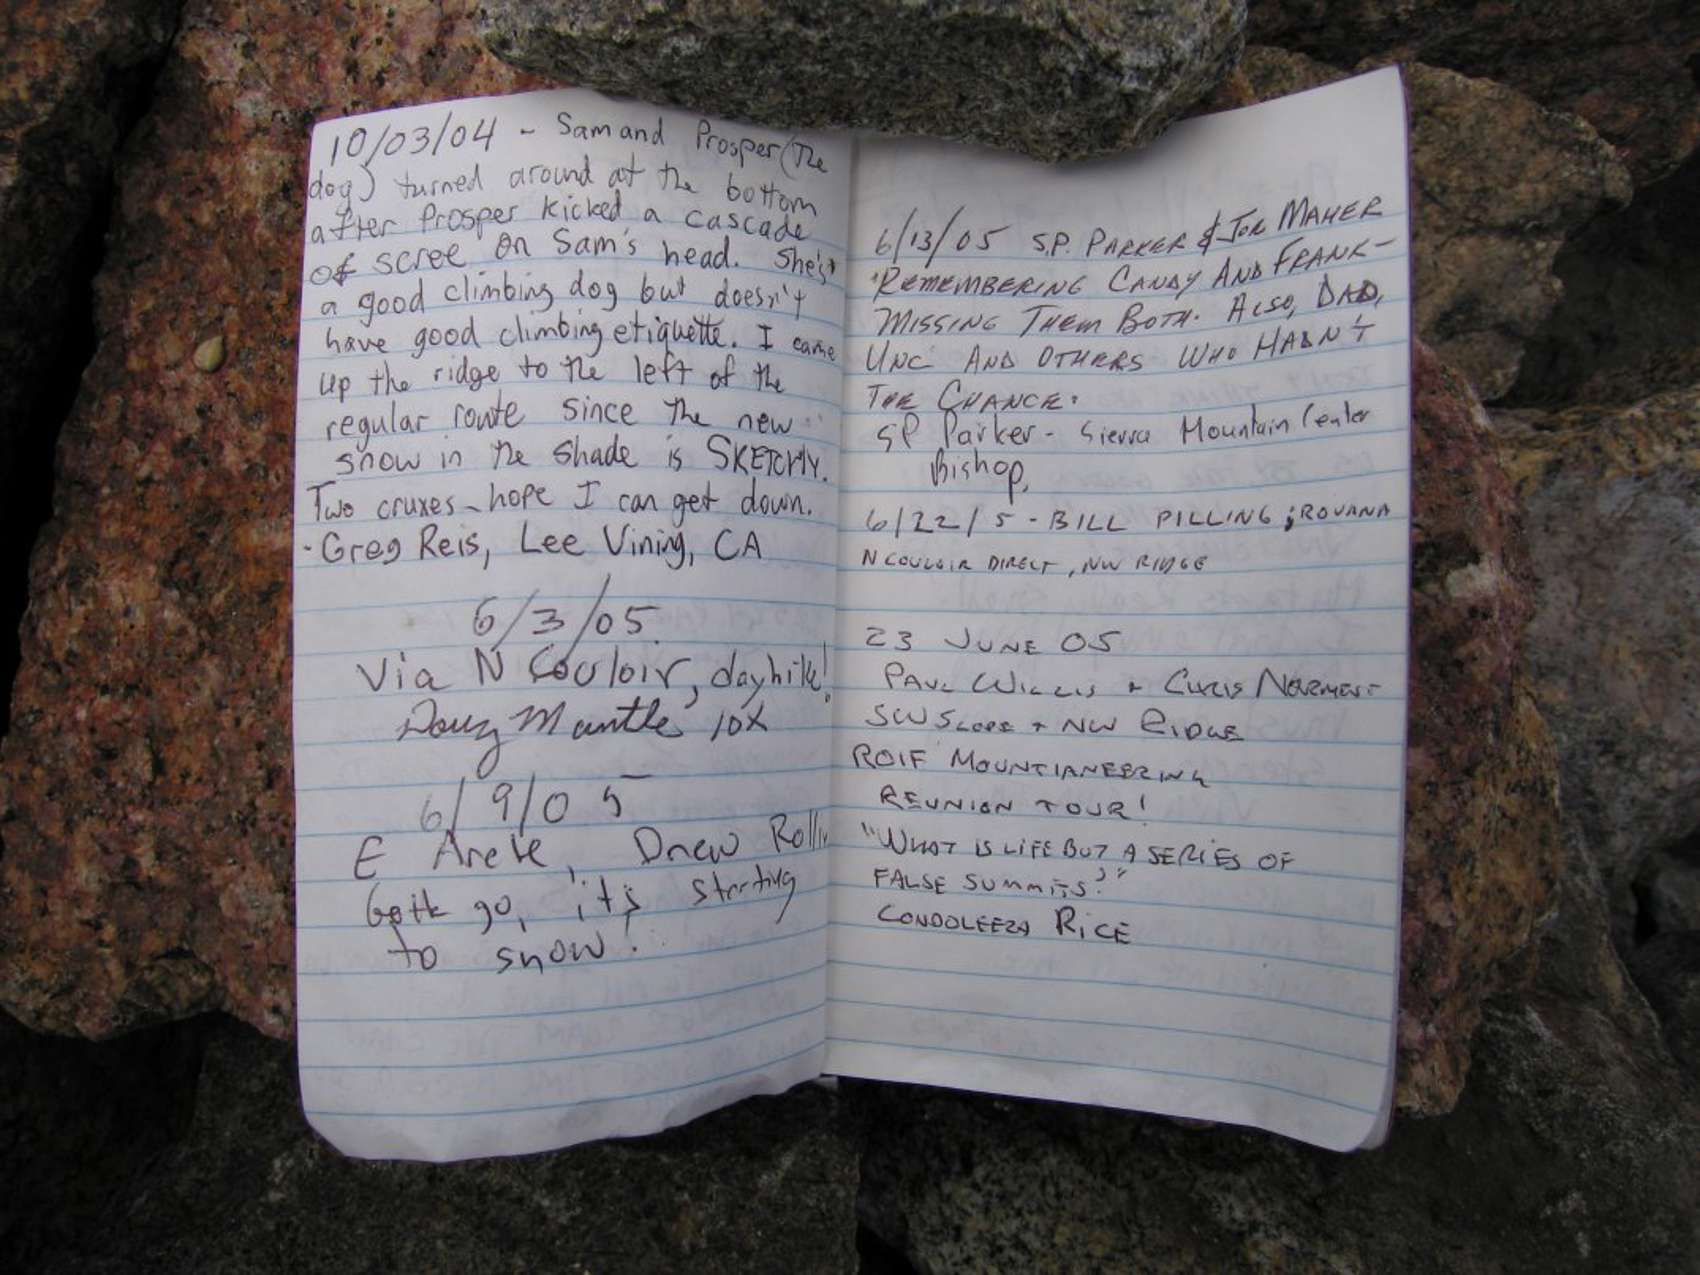 10/03/04 - Sam and Prosper (the
dog) turned around at the bottom
after Prosper kicked a cascade
of scree on Sam's head. She's
a good climbing dog but doesn't
have good climbing etiquette. I came
up the ridge to the left of the
regular route since the new
snow in the shade is SKETCHY.
Two cruxes - hope I can get down.
- Greg Reis, Lee Vining, CA
6/3/05
Via N Couloir, dayhike!
Doug Mantle 10X
6/9/05
E Arete, Drew
Gotta go, it's starting
to snow!
6/13/05 S.P. PARKER & JOE MAHER
REMEMBERING CANDY AND FRANK -
MISSING THEM BOTH. ALSO, DAD,
UNC AND OTHERS WHO HADN'T
THE CHANCE.
SP Parker - Sierra Mountain Center
Bishop,
6/22/5 - BILL PILLING; ROVANA
N COULOIR DIRECT, NW RIDGE
23 JUNE 05
PAUL WILLIS + CHRIS NORMENT
SW SLOPE + NW RIDGE
ROIF MOUNTIANEERING
REUNION TOUR!
"WHAT IS LIFE BUT A SERIES OF
FALSE SUMMITS?"
CONDOLEEZA RICE